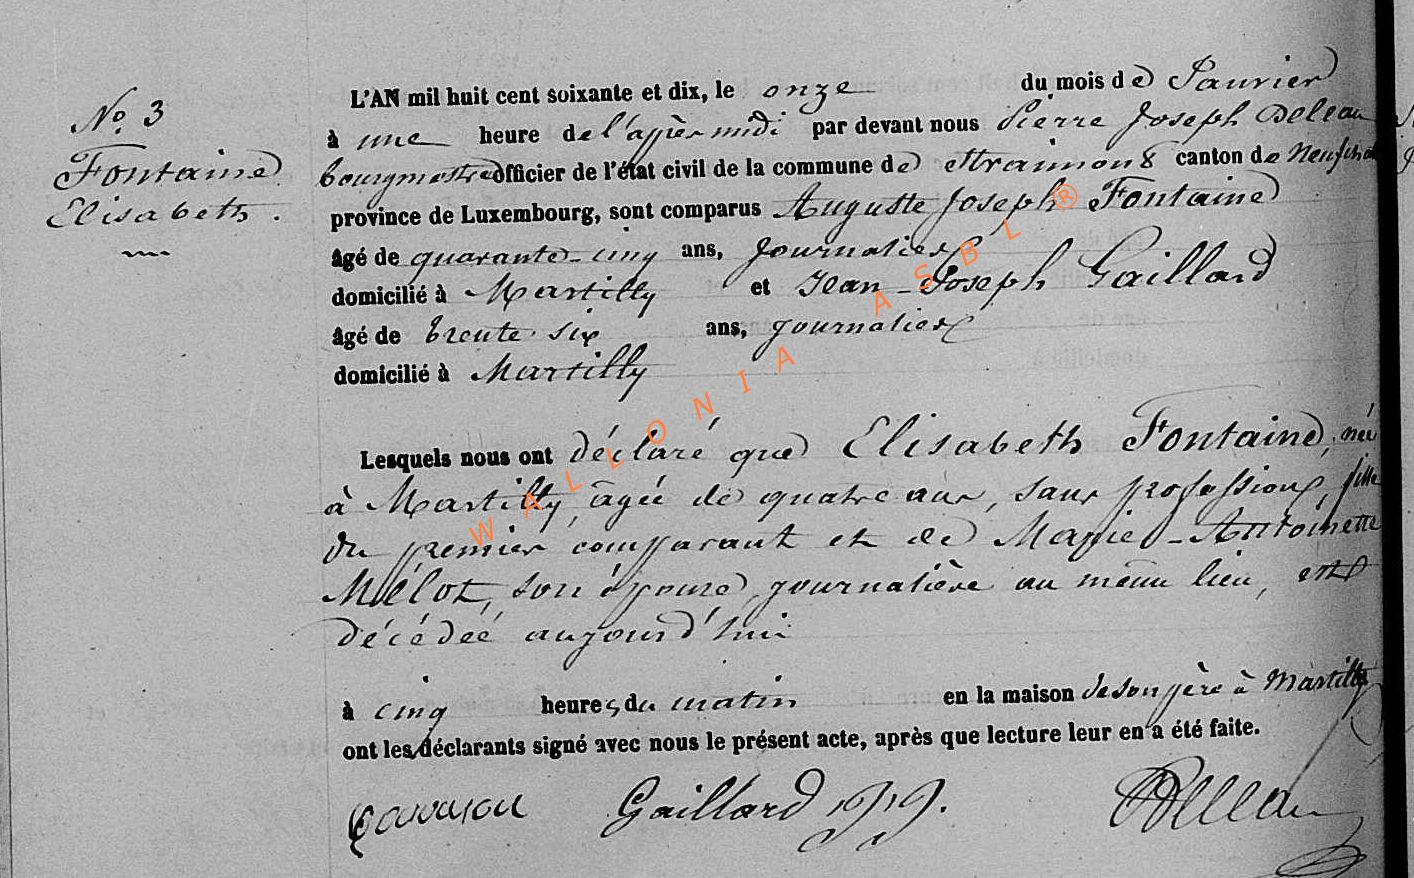 No. 3
Fontaine
Elisabeth.
L'AN mil huit cent soixante et dix, le onze du mois de Janvier
à une heure de l'après midi par devant nous Pierre Joseph Deleau
bourgmestre officier de l'état civil de la commune de Straimont canton de Neufcha
province de Luxembourg, sont comparus Auguste Joseph Fontaine
âgé de quarante-cinq ans, journalier
domicilié à Martilly et Jean-Joseph Gaillard
âgé de trente six ans, journalier
domicilié à Martilly
Lesquels nous ont déclaré que Elisabeth Fontaine, née
à Martilly, âgée de quatre ans, sans profession, fille
du premier comparant et de Marie-Antoinette
Mélot, son épouse, journalière au même lieu, est
décédée aujourd'hui
à cinq heures du matin en la maison de son père à Martilly
ont les déclarants signé avec nous le présent acte, après que lecture leur en a été faite.
Gaillard J J. Deleau
WALLONIA ASBL ®